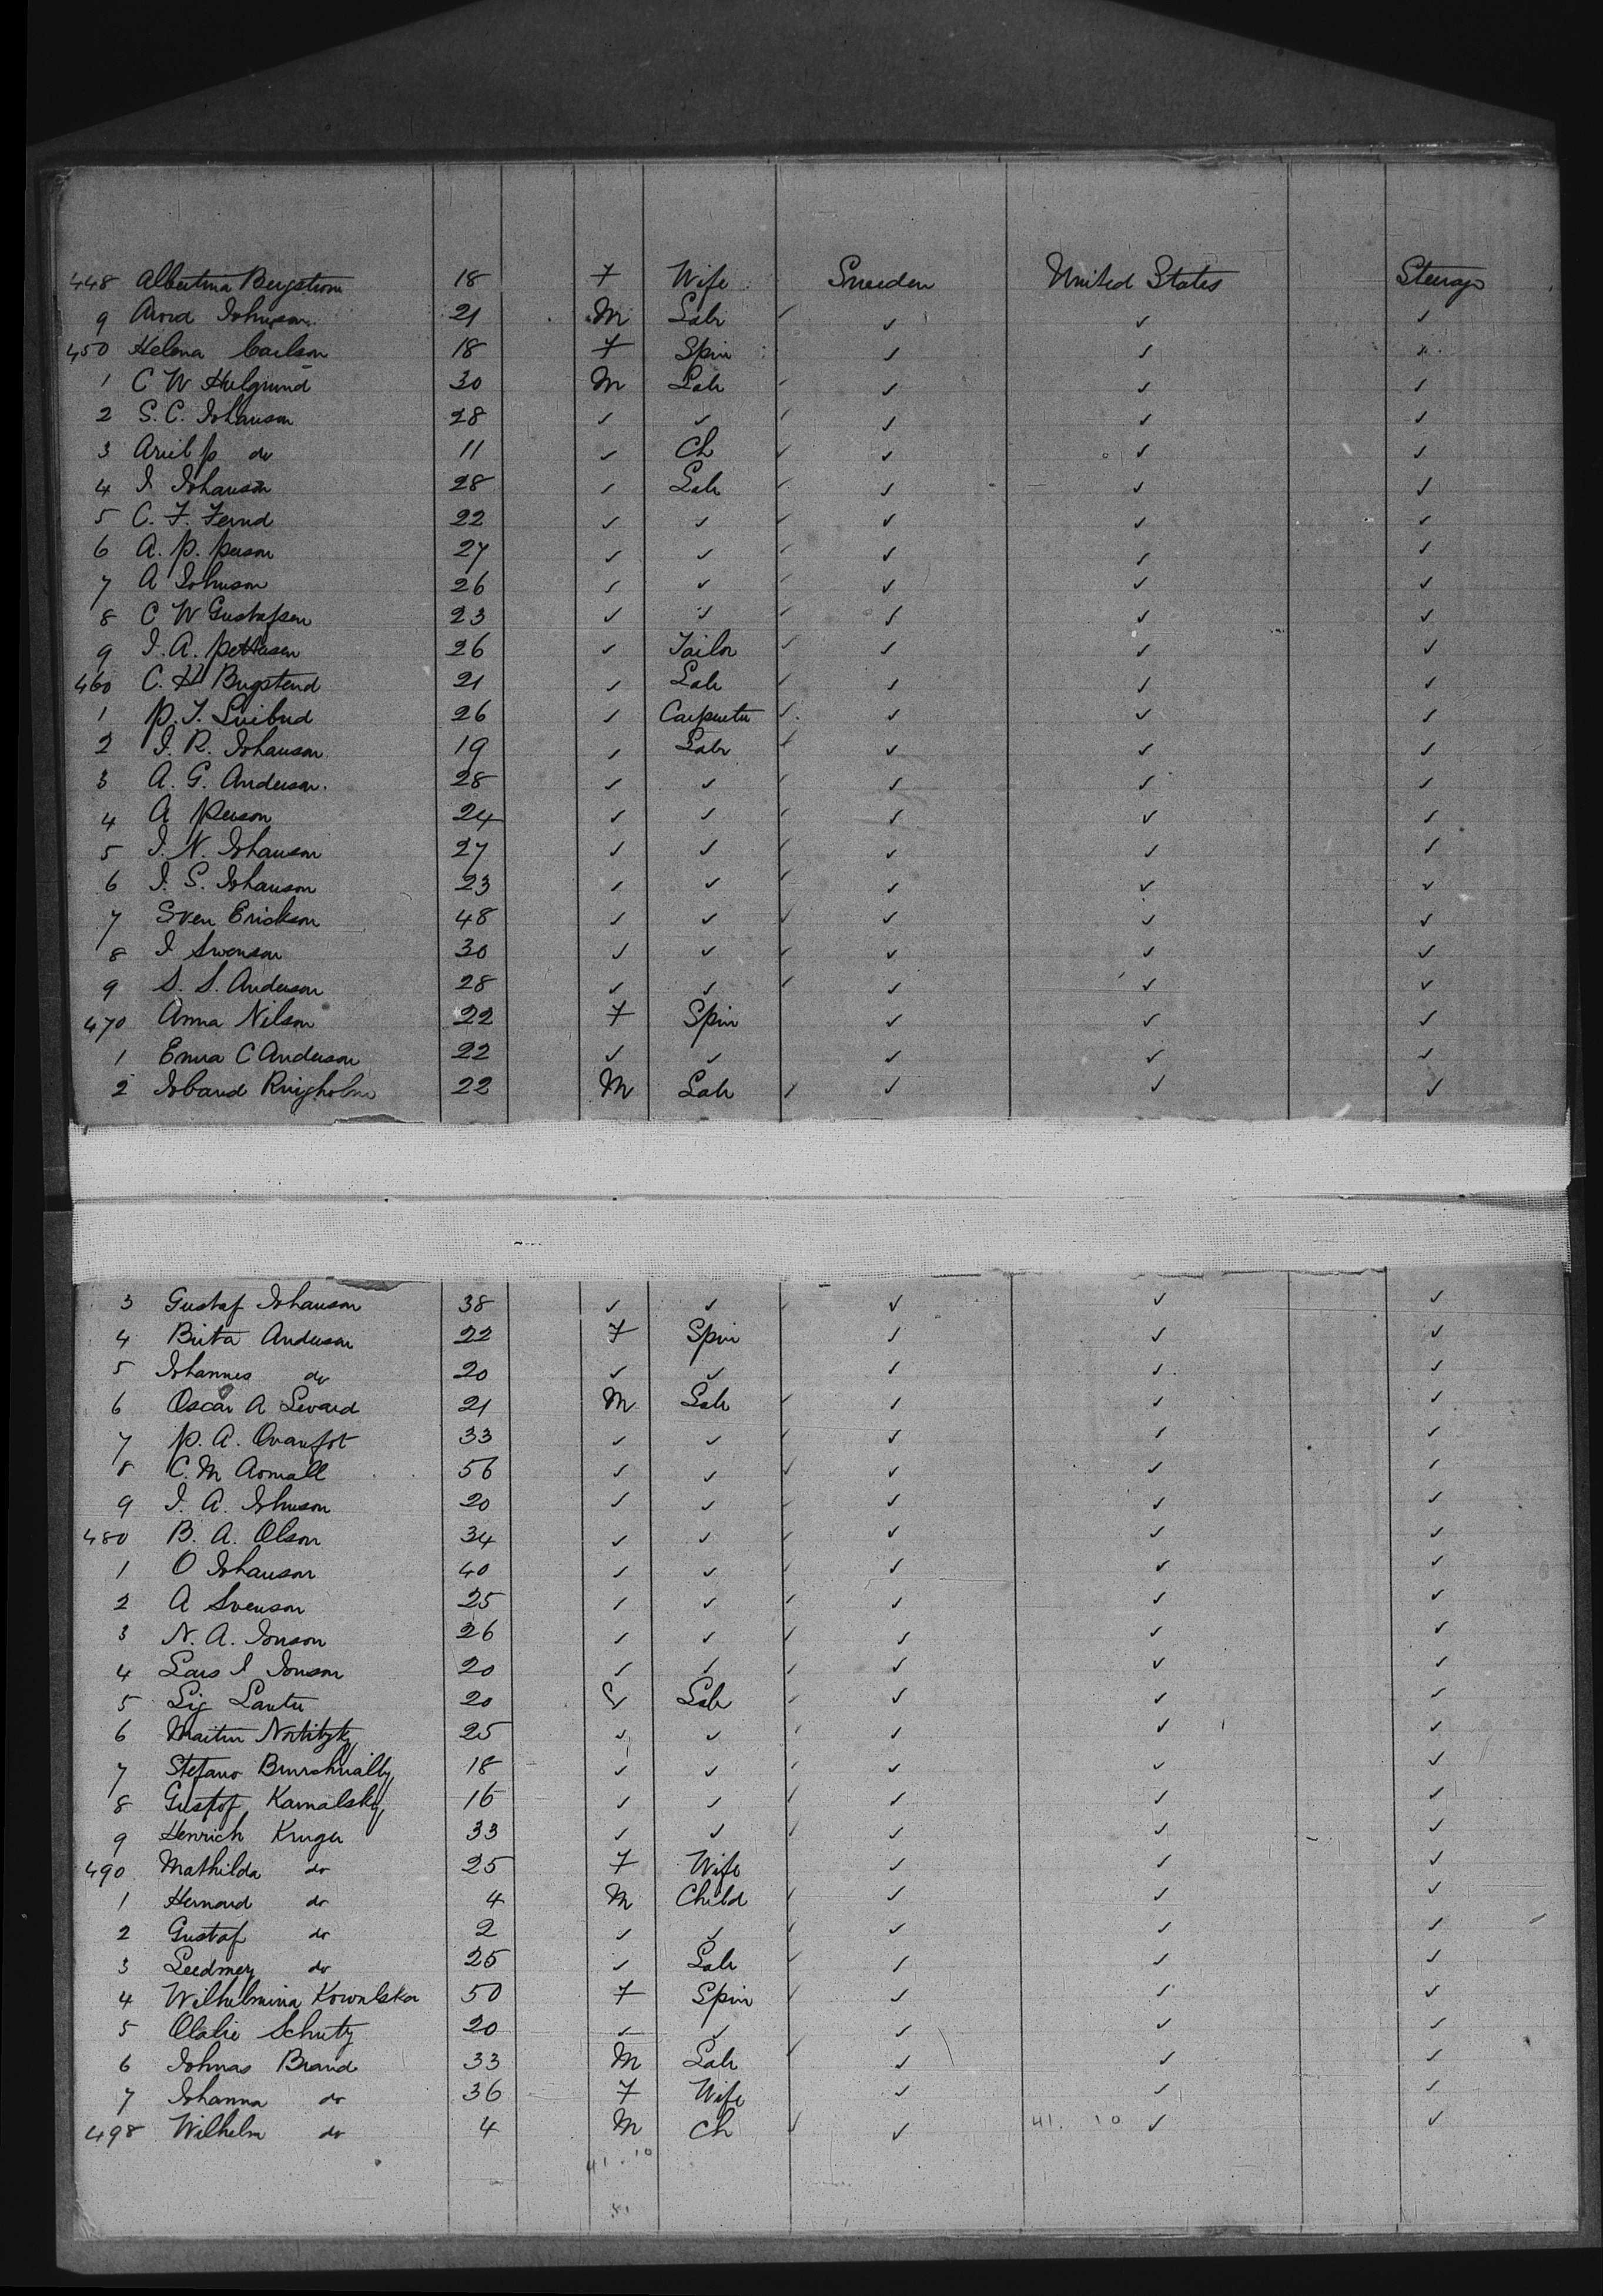 448 Albertina Bergstrom 18 F Wife Sweeden United States Steerage
9 Arvid Johnson 21 M Labr ✓ ✓ ✓ ✓
450 Helena Carlson 18 F Spin ✓ ✓ ✓
1 C W Hulgrund 30 M Labr ✓ ✓ ✓ ✓
2 S. C. Johanson 28 ✓ ✓ ✓ ✓ ✓ ✓
3 do 11 ✓ Ch ✓ ✓ ✓ ✓
4 I Johanson 28 ✓ Labr ✓ ✓ ✓ ✓
5 C. F. Fernd 22 ✓ ✓ ✓ ✓ ✓ ✓
6 A. P. Person 27 ✓ ✓ ✓ ✓ ✓ ✓
7 A Johnson 26 ✓ ✓ ✓ ✓ ✓ ✓
8 C W Gustafsen 23 ✓ ✓ ✓ ✓ ✓ ✓
9 I. A. Pettersen 26 ✓ Tailor ✓ ✓ ✓ ✓
460 C. 21 ✓ Labr ✓ ✓ ✓ ✓
1 P. 26 ✓ Carpenter ✓ ✓ ✓ ✓
2 I. R. Johanson 19 ✓ Labr ✓ ✓ ✓ ✓
3 A. G. Anderson 28 ✓ ✓ ✓ ✓ ✓ ✓
4 A Person 24 ✓ ✓ ✓ ✓ ✓ ✓
5 I. N. Johanson 27 ✓ ✓ ✓ ✓ ✓ ✓
6 I. S. Johanson 23 ✓ ✓ ✓ ✓ ✓ ✓
7 Sven Erickson 48 ✓ ✓ ✓ ✓ ✓ ✓
8 I Swenson 30 ✓ ✓ ✓ ✓ ✓ ✓
9 S. S. Anderson 28 ✓ ✓ ✓ ✓ ✓ ✓
470 Anna Nilson 22 F Spin ✓ ✓ ✓
1 Emma C Anderson 22 ✓ ✓ ✓ ✓ ✓
2 Ringholm 22 M Labr ✓ ✓ ✓ ✓
3 Gustaf Johanson 38 ✓ ✓ ✓ ✓ ✓ ✓
4 Brita Anderson 22 F Spin ✓ ✓ ✓
5 Johannes do 20 ✓ ✓ ✓ ✓ ✓
6 Oscar A 21 M Labr ✓ ✓ ✓ ✓
7 P. A. 33 ✓ ✓ ✓ ✓ ✓ ✓
8 C. M 56 ✓ ✓ ✓ ✓ ✓ ✓
9 I. A. Johnson 20 ✓ ✓ ✓ ✓ ✓ ✓
480 B. A. Olson 34 ✓ ✓ ✓ ✓ ✓ ✓
1 O Johanson 40 ✓ ✓ ✓ ✓ ✓ ✓
2 A Svenson 25 ✓ ✓ ✓ ✓ ✓ ✓
3 N. A. Jonson 26 ✓ ✓ ✓ ✓ ✓ ✓
4 Lars I Jonson 20 ✓ ✓ ✓ ✓ ✓ ✓
5 20 ✓ Labr ✓ ✓ ✓ ✓
6 Martin 25 ✓ ✓ ✓ ✓ ✓ ✓
7 Stefano 18 ✓ ✓ ✓ ✓ ✓ ✓
8 Gustof Kamalsky 16 ✓ ✓ ✓ ✓ ✓ ✓
9 Henrich Kruger 33 ✓ ✓ ✓ ✓ ✓ ✓
490 Mathilda do 25 F Wife ✓ ✓ ✓
1 Hernard do 4 M Child ✓ ✓ ✓ ✓
2 Gustaf do 2 ✓ ✓ ✓ ✓ ✓ ✓
3 do 25 ✓ Labr ✓ ✓ ✓ ✓
4 Wilhelmina Kowalska 50 F Spin ✓ ✓ ✓ ✓
5 Schutz 20 ✓ ✓ ✓ ✓ ✓
6 Brand 33 M Labr ✓ ✓ ✓ ✓
7 Johanna do 36 F Wife ✓ ✓ ✓
498 Wilhelm do 4 M Ch ✓ ✓ 41. 10 ✓ ✓
41. 10